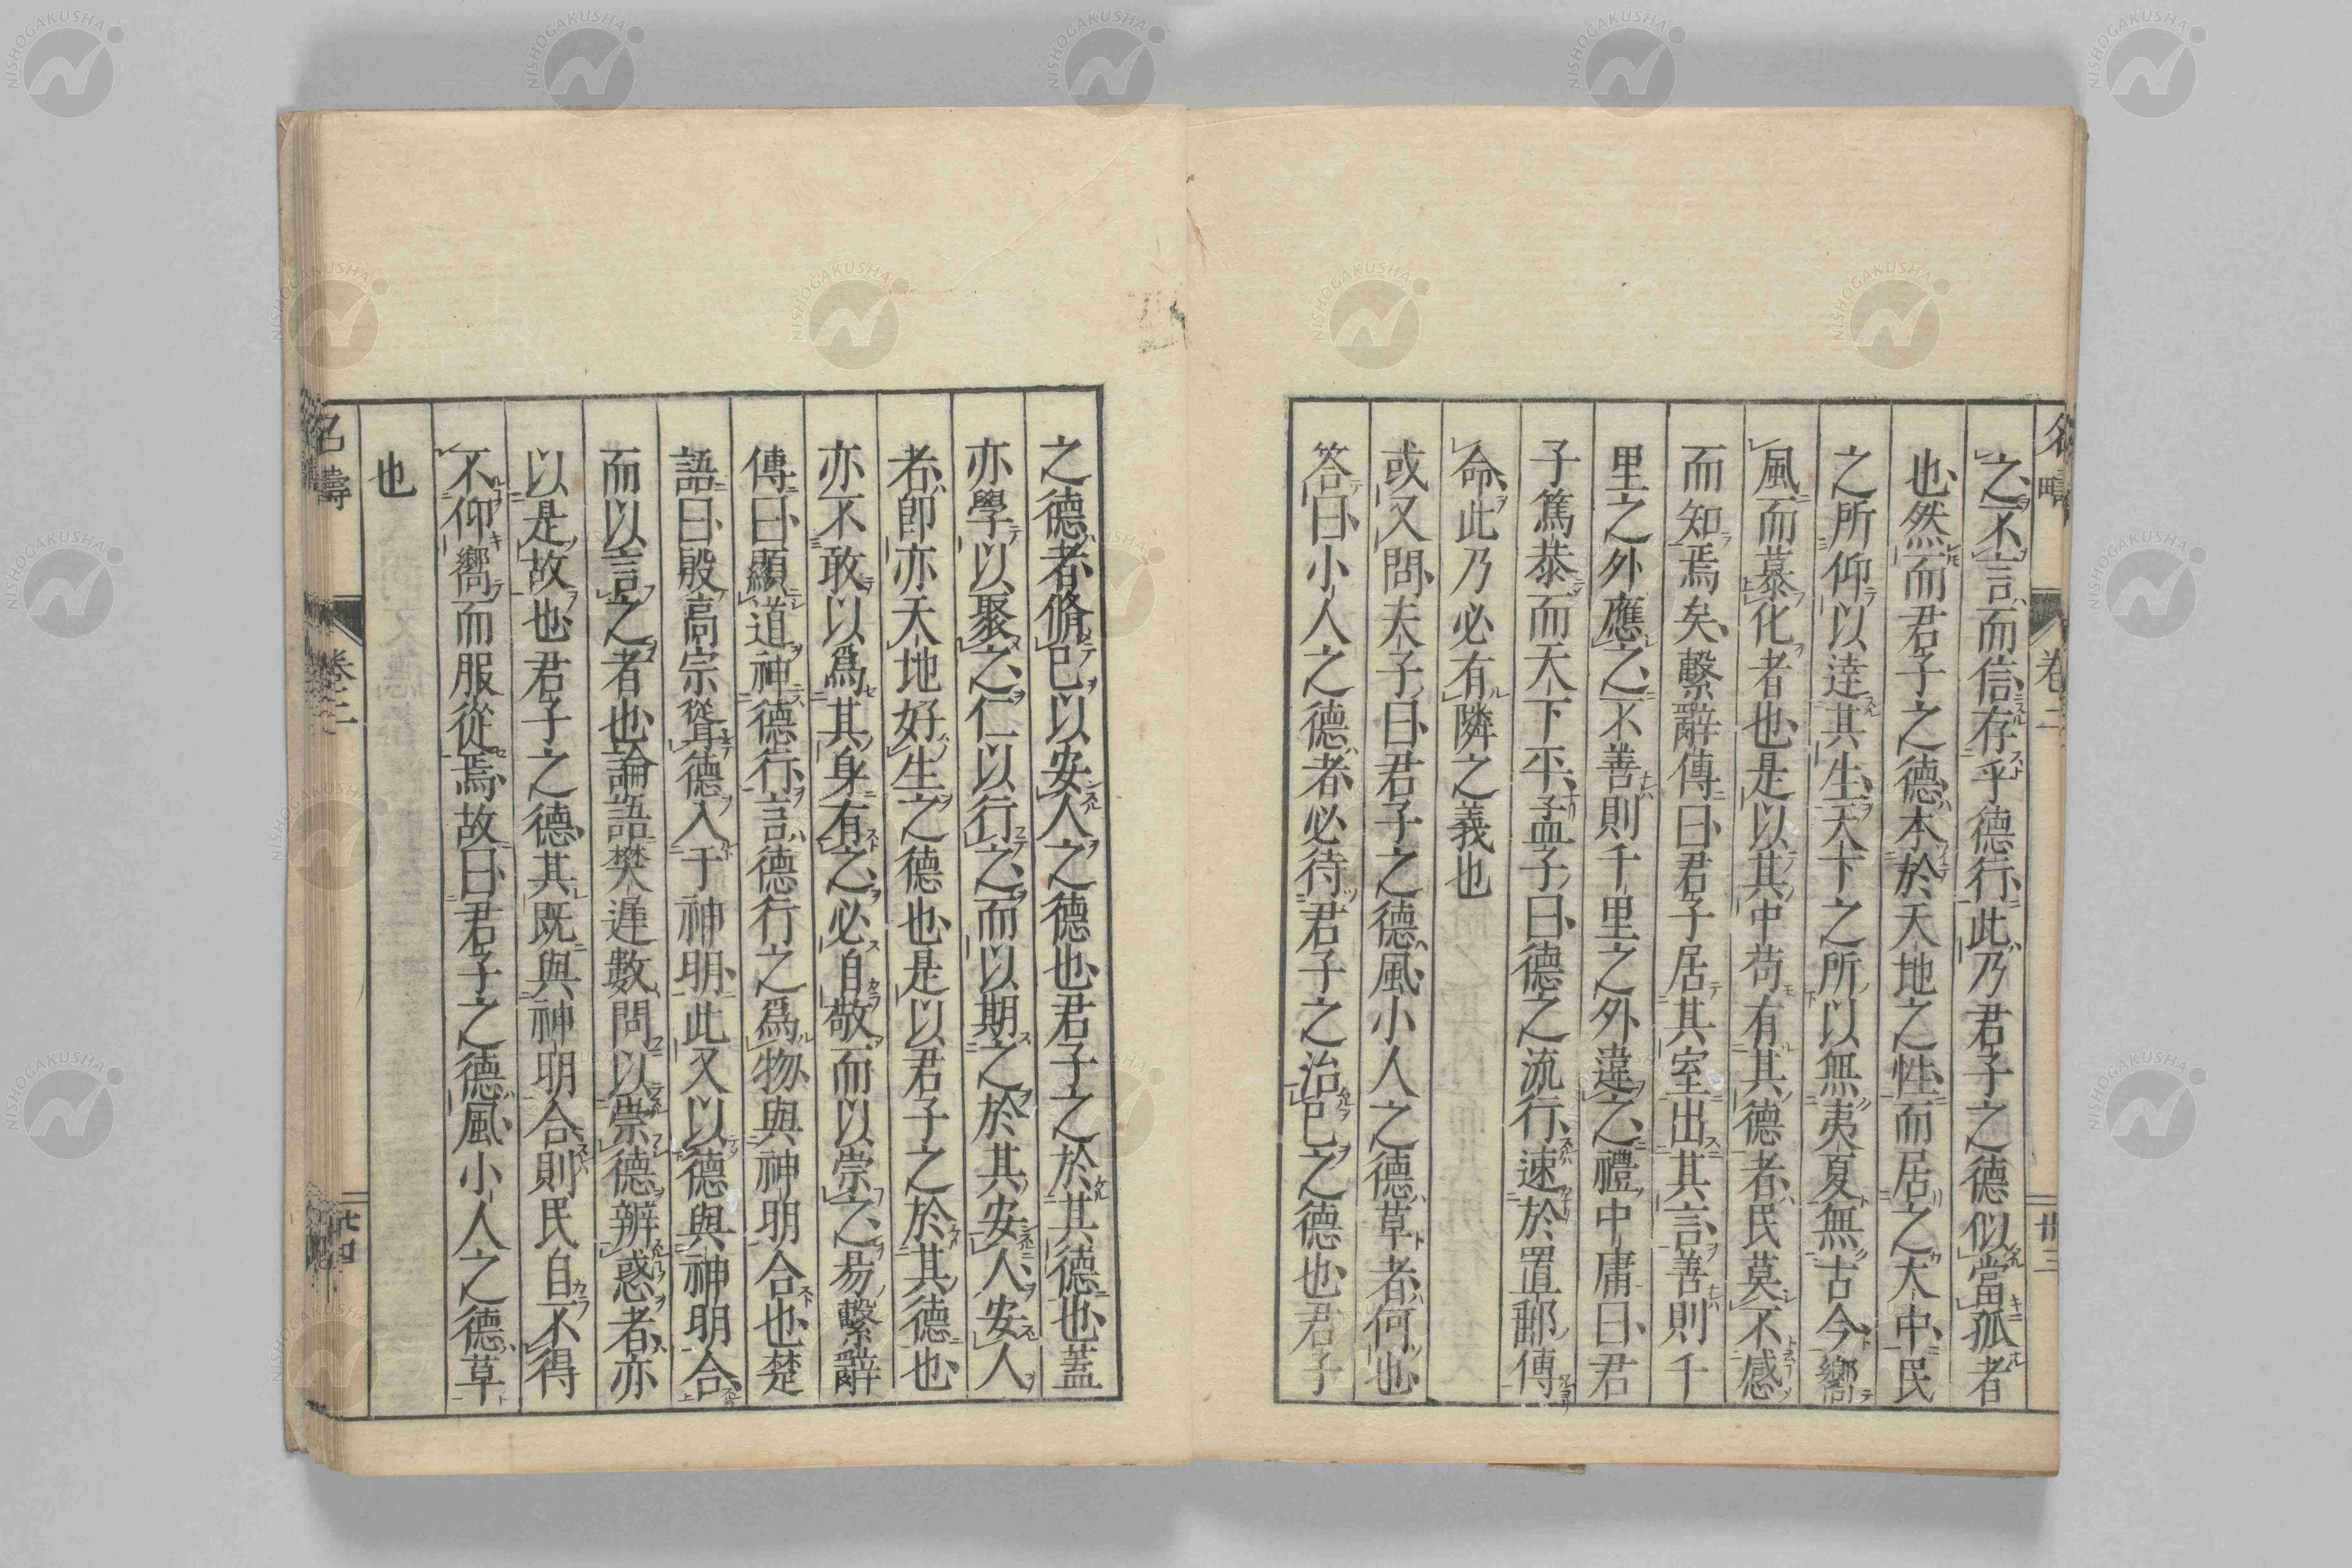 名疇 卷二 卅三
之不言而信存乎德行此乃君子之德似當孤者
也然而君子之德本於天地之性而居之大中民
之所仰以逹其生天下之所以無夷夏無古今嚮
風而慕化者也是以其中苟有其德者民莫不感
而知焉矣繫辭傳曰君子居其室出其言善則千
里之外應之不善則千里之外違之禮中庸曰君
子篤恭而天下平孟子曰德之流行速於置郵傳
命此乃必有隣之義也
或又問夫子曰君子之德風小人之德草者何也
答曰小人之德者必待君子之治已之德也君子
之德者脩已以安人之德也君子之於其德也蓋
亦學以聚之仁以行之而以期之於其安人安人
者卽亦天地好生之德也是以君子之於其德也
亦不敢以爲其身有之必自敬而以崇之易繫辭
傳曰顯道神德行言德行之爲物與神明合也楚
語曰殷高宗聳德入于神明此又以德與神明合
而以言之者也論語樊遲數問以崇德辨惑者亦
以是故也君子之德其既與神明合則民自不得
不仰嚮而服從焉故曰君子之德風小人之德草
也
名疇 卷二 卅四
NISHOGAKUSHA
NISHOGAKUSHA
NISHOGAKUSHA
NISHOGAKUSHA
NISHOGAKUSHA
NISHOGAKUSHA
NISHOGAKUSHA
NISHOGAKUSHA
NISHOGAKUSHA
NISHOGAKUSHA
NISHOGAKUSHA
NISHOGAKUSHA
NISHOGAKUSHA